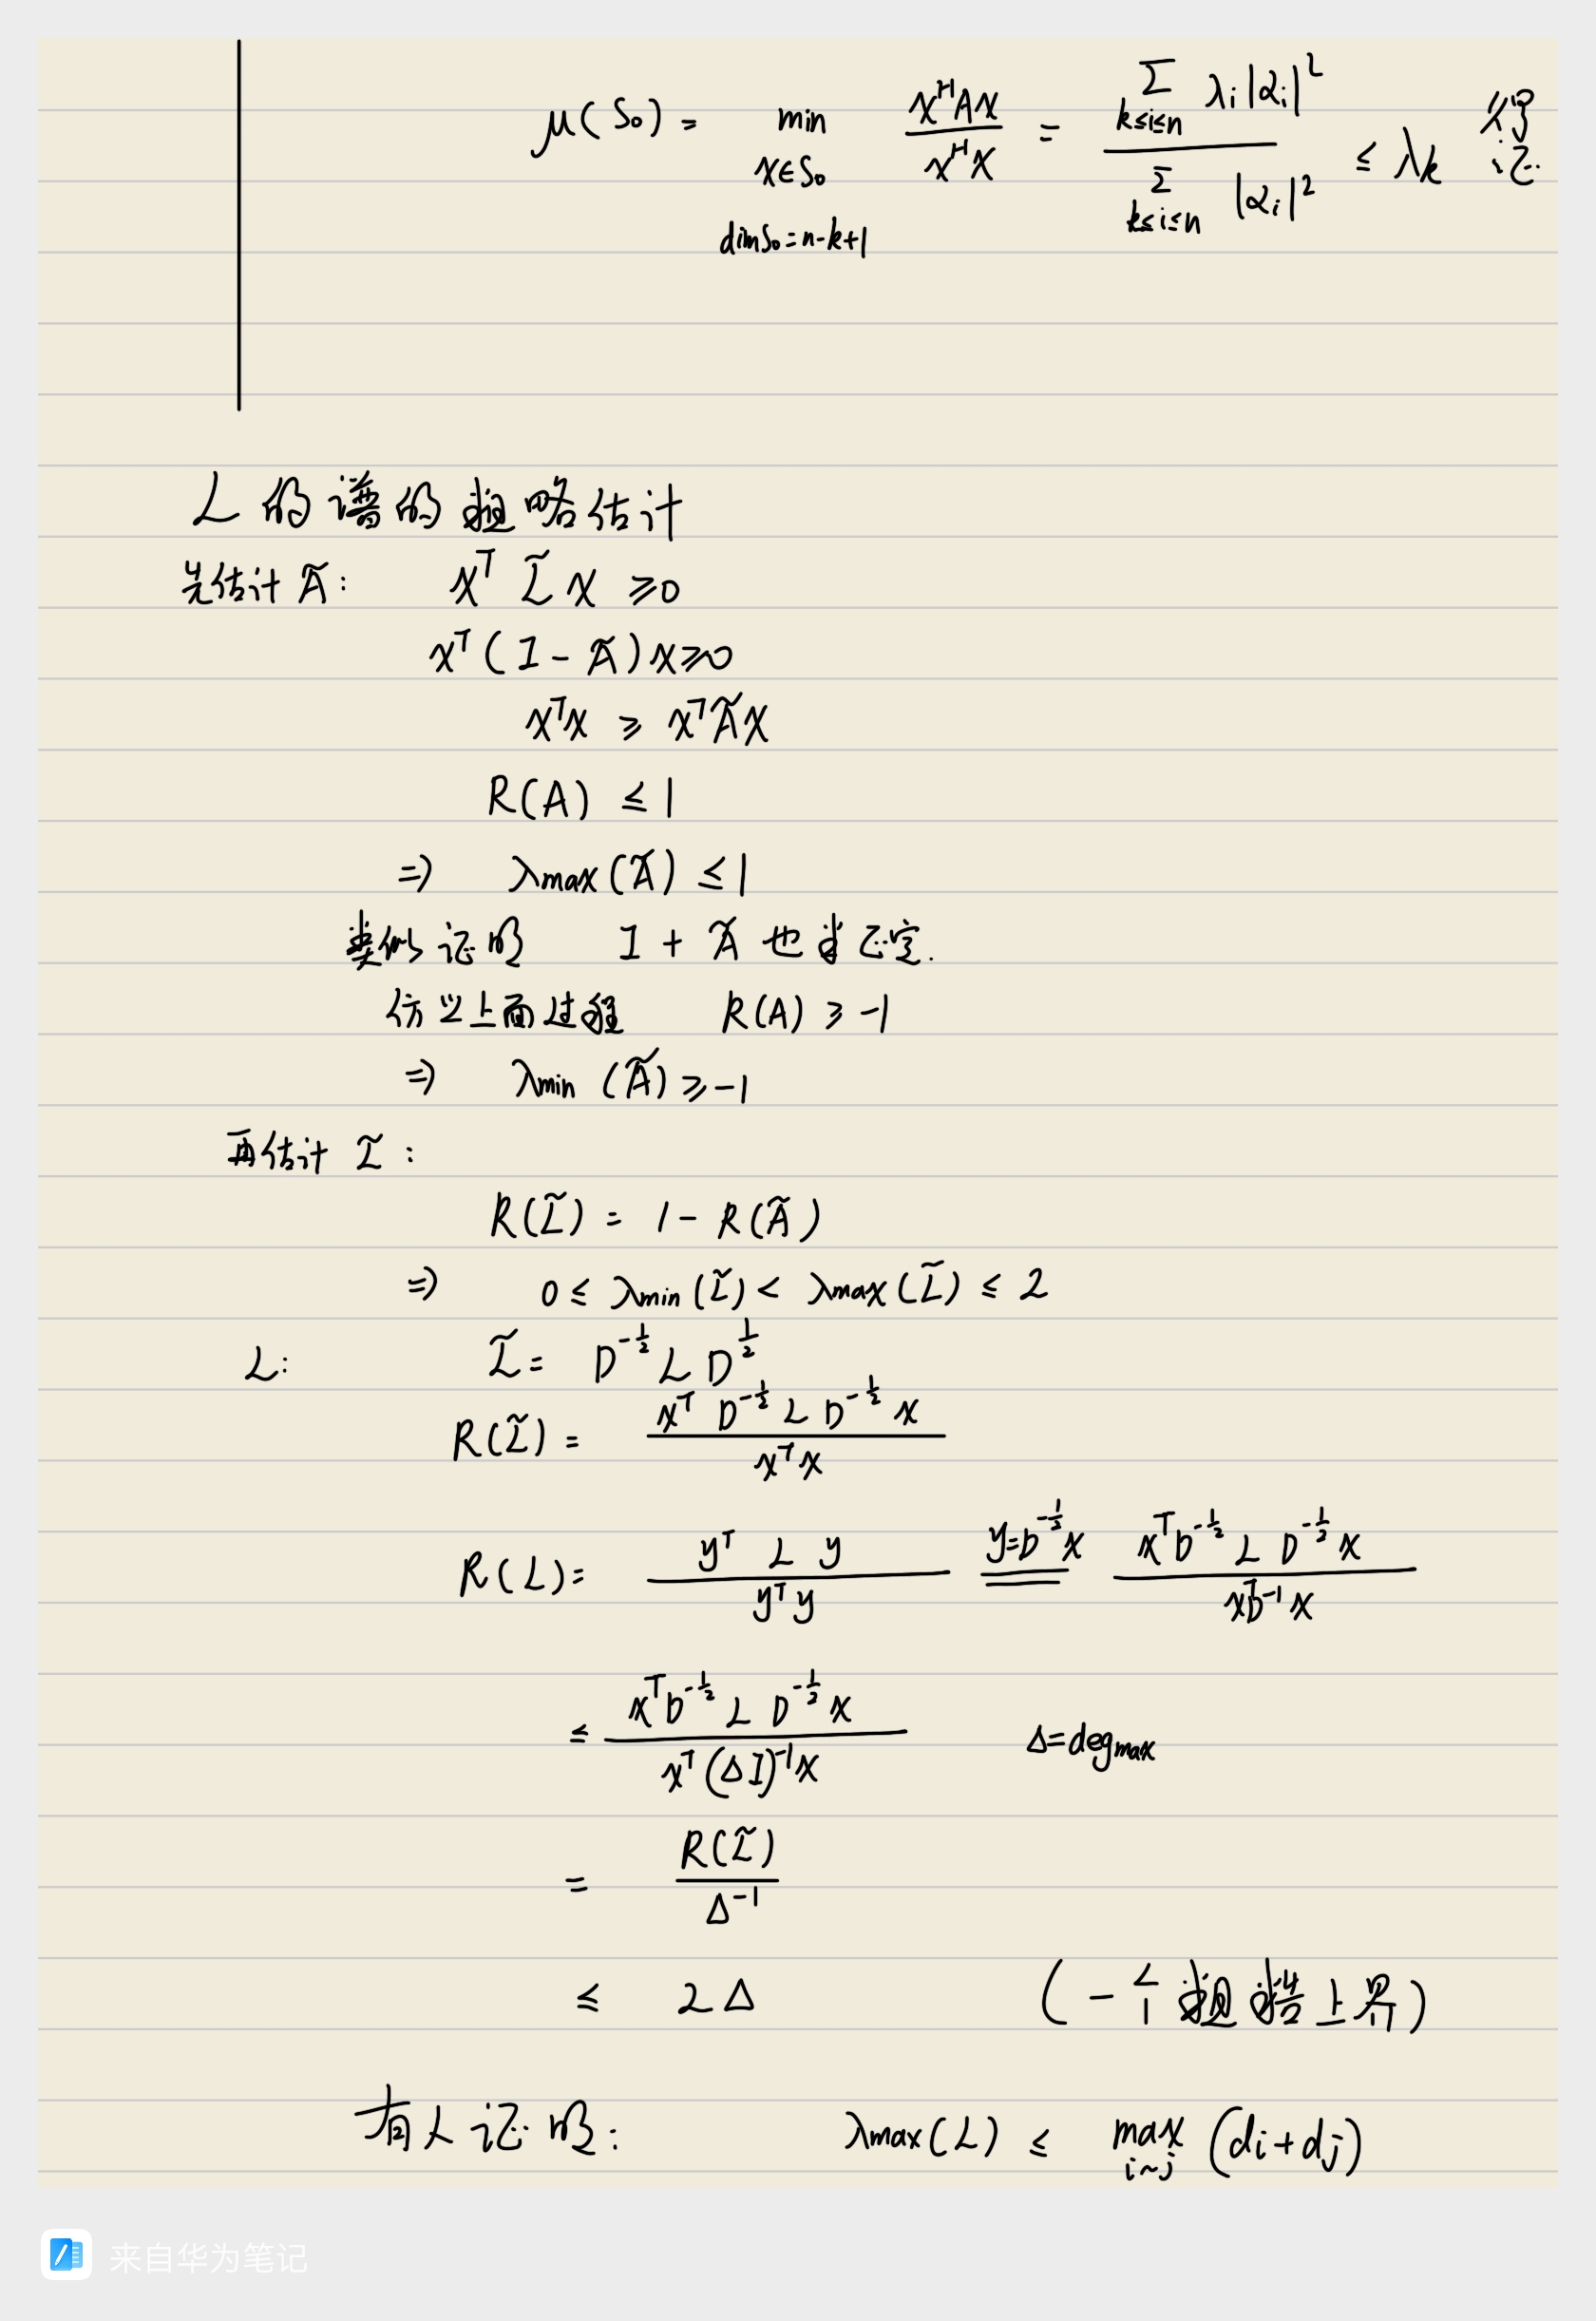 μ(S₀) = min_{x∈S₀, dim S₀=n-k+1} x^H A x / x^H x = Σ_{k≤i≤n} λᵢ|αᵢ|² / Σ_{k≤i≤n} |αᵢ|² ≤ λk 得证.
L 的谱的粗略估计
先估计 Ã: x^T L̃ x ≥ 0
x^T (I - Ã) x ≥ 0
x^T x ≥ x^T Ã x
R(A) ≤ 1
⇒ λmax(Ã) ≤ 1
类似证明 I + Ã 也半正定.
仿照上面过程 R(A) ≥ -1
⇒ λmin (Ã) ≥ -1
再估计 L̃:
R(L̃) = 1 - R(Ã)
⇒ 0 ≤ λmin(L̃) < λmax(L̃) ≤ 2
L: L̃ = D^{-1/2} L D^{1/2}
R(L̃) = x^T D^{-1/2} L D^{-1/2} x / x^T x
R(L) = y^T L y / y^T y = (y = D^{-1/2} x) x^T D^{-1/2} L D^{-1/2} x / x^T D^{-1} x
≤ x^T D^{-1/2} L D^{-1/2} x / x^T (ΔI)^{-1} x Δ = deg_max
= R(L̃) / Δ^{-1}
≤ 2Δ (一个粗糙上界)
有人证明: λmax(L) ≤ max_{i~j} (di + dj)
来自华为笔记